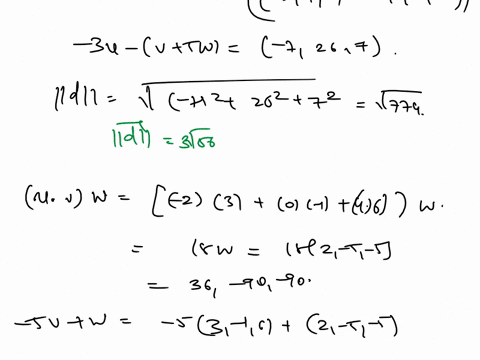 -3u-(v+5w) = (-7, 26, 7).
||d|| = √(-7)²+ 26²+7² = √774.
||d|| = 3√86
(u.v) w = [(-2) (3) + (0) (-1) + (4)(6)] w.
= 18w = 18[2,-5,-5]
= 36, -90, -90.
-5v+w = -5(3,-1,6) + (2,-5,-5)